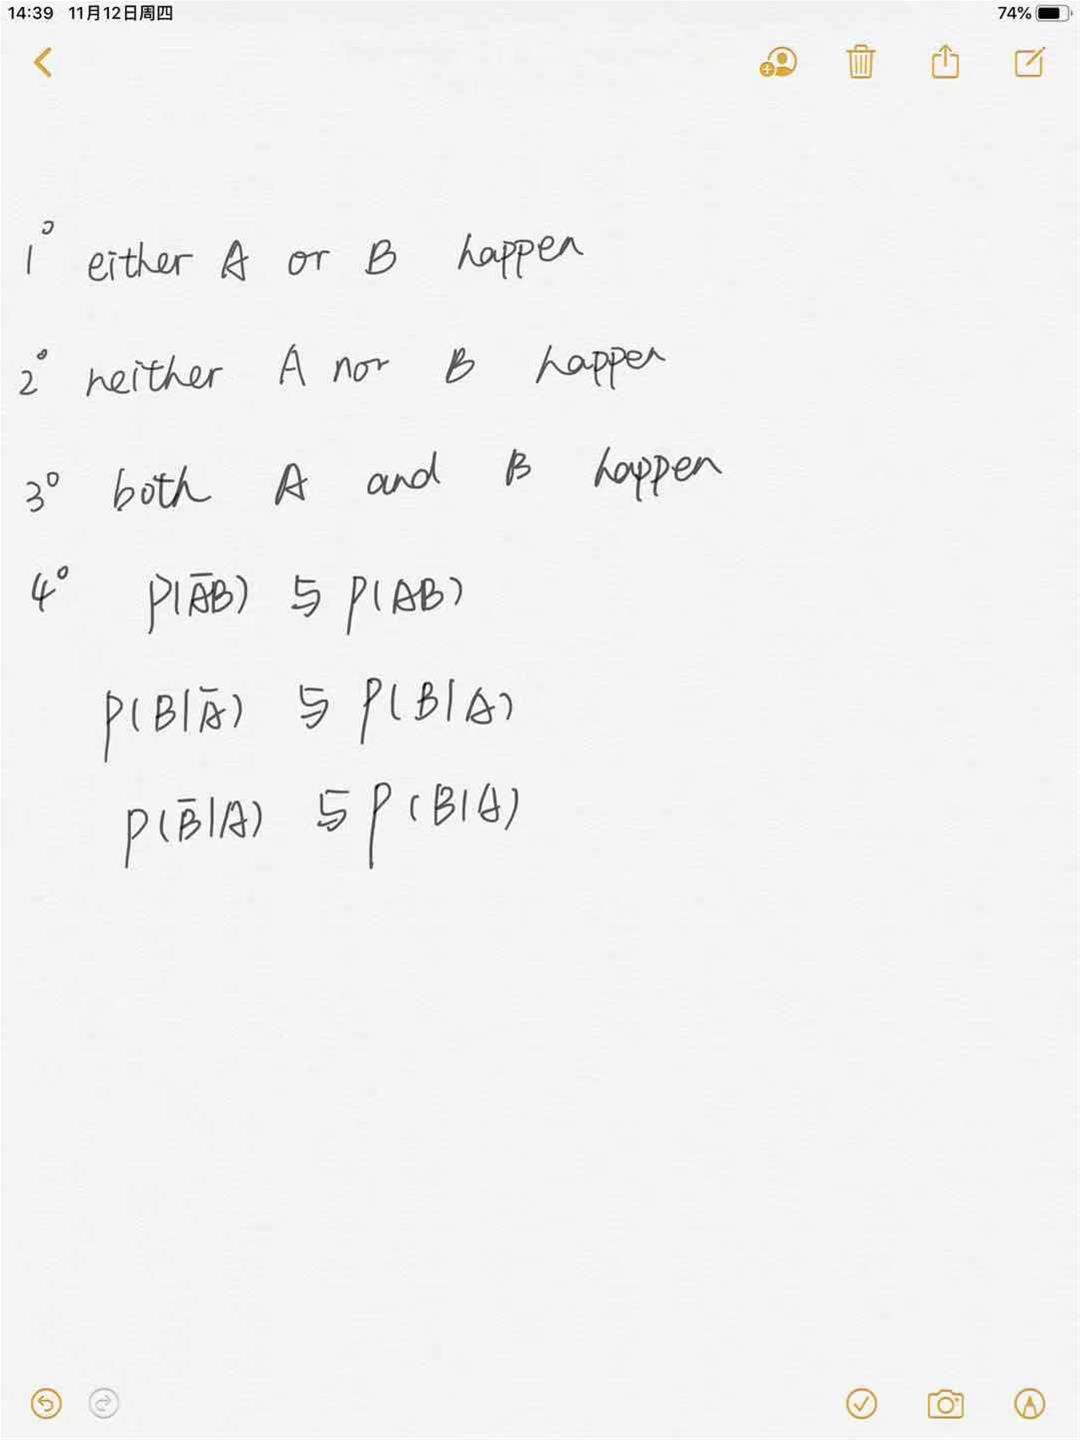 14:39 11月12日周四 74%
1° either A or B happen
2° neither A nor B happen
3° both A and B happen
4° P(A̅B) 与 P(AB)
P(B|A̅) 与 P(B|A)
P(B̅|A) 与 P(B|A)